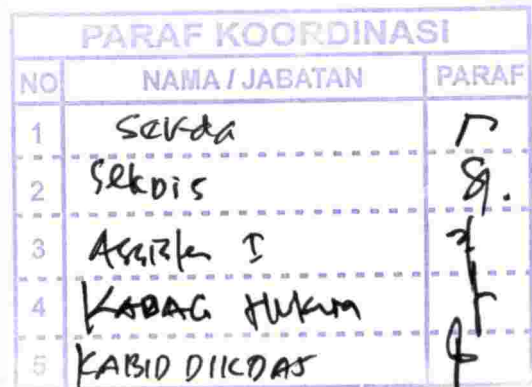 PARAF KOORDINASI
NO NAMA / JABATAN PARAF
1 Sekda
2 Sekdis
3 Asisten I
4 KABAG Hukum
5 KABID DIKDAS